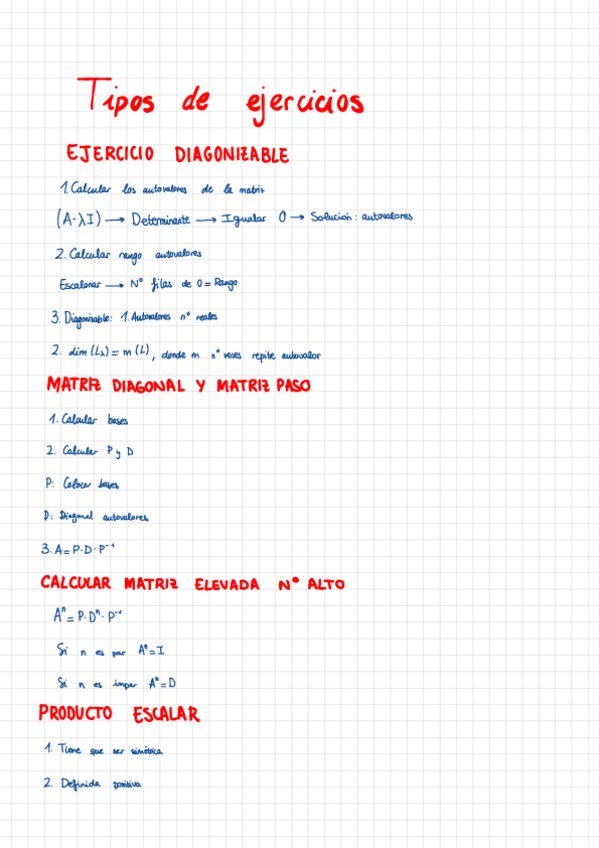 Tipos de ejercicios
EJERCICIO DIAGONIZABLE
1. Calcular los autovalores de la matriz
(A-λI) → Determinante → Igualar 0 → Solución: autovalores
2. Calcular rango autovalores
Escalonar → Nº filas de 0 = Rango
3. Diagonizable: 1. Autovalores nº reales
2. dim (Lλ) = m (L), donde m nº veces repite autovalor
MATRIZ DIAGONAL Y MATRIZ PASO
1. Calcular bases
2. Calcular P y D
P: Colocar bases
D: Diagonal autovalores
3. A = P·D·P⁻¹
CALCULAR MATRIZ ELEVADA Nº ALTO
Aⁿ = P·Dⁿ·P⁻¹
Si n es par Aⁿ = I
Si n es impar Aⁿ = D
PRODUCTO ESCALAR
1. Tiene que ser simétrica
2. Definida positiva